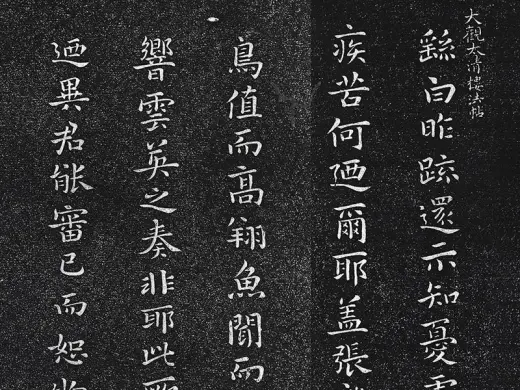 大觀太清樓法帖
繇白昨疏還示知憂
疾苦何迺爾耶蓋張
鳥值而高翔魚聞而
響雲英之奏非耶此所
迺異君能審己而恕